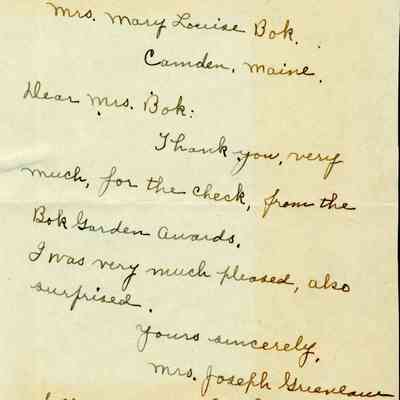 Mrs. Mary Louise Bok.
Camden, Maine.
Dear Mrs. Bok:
Thank you, very
much, for the check, from the
Bok Garden Awards.
I was very much pleased, also
surprised.
Yours sincerely,
Mrs. Joseph Greenlaw